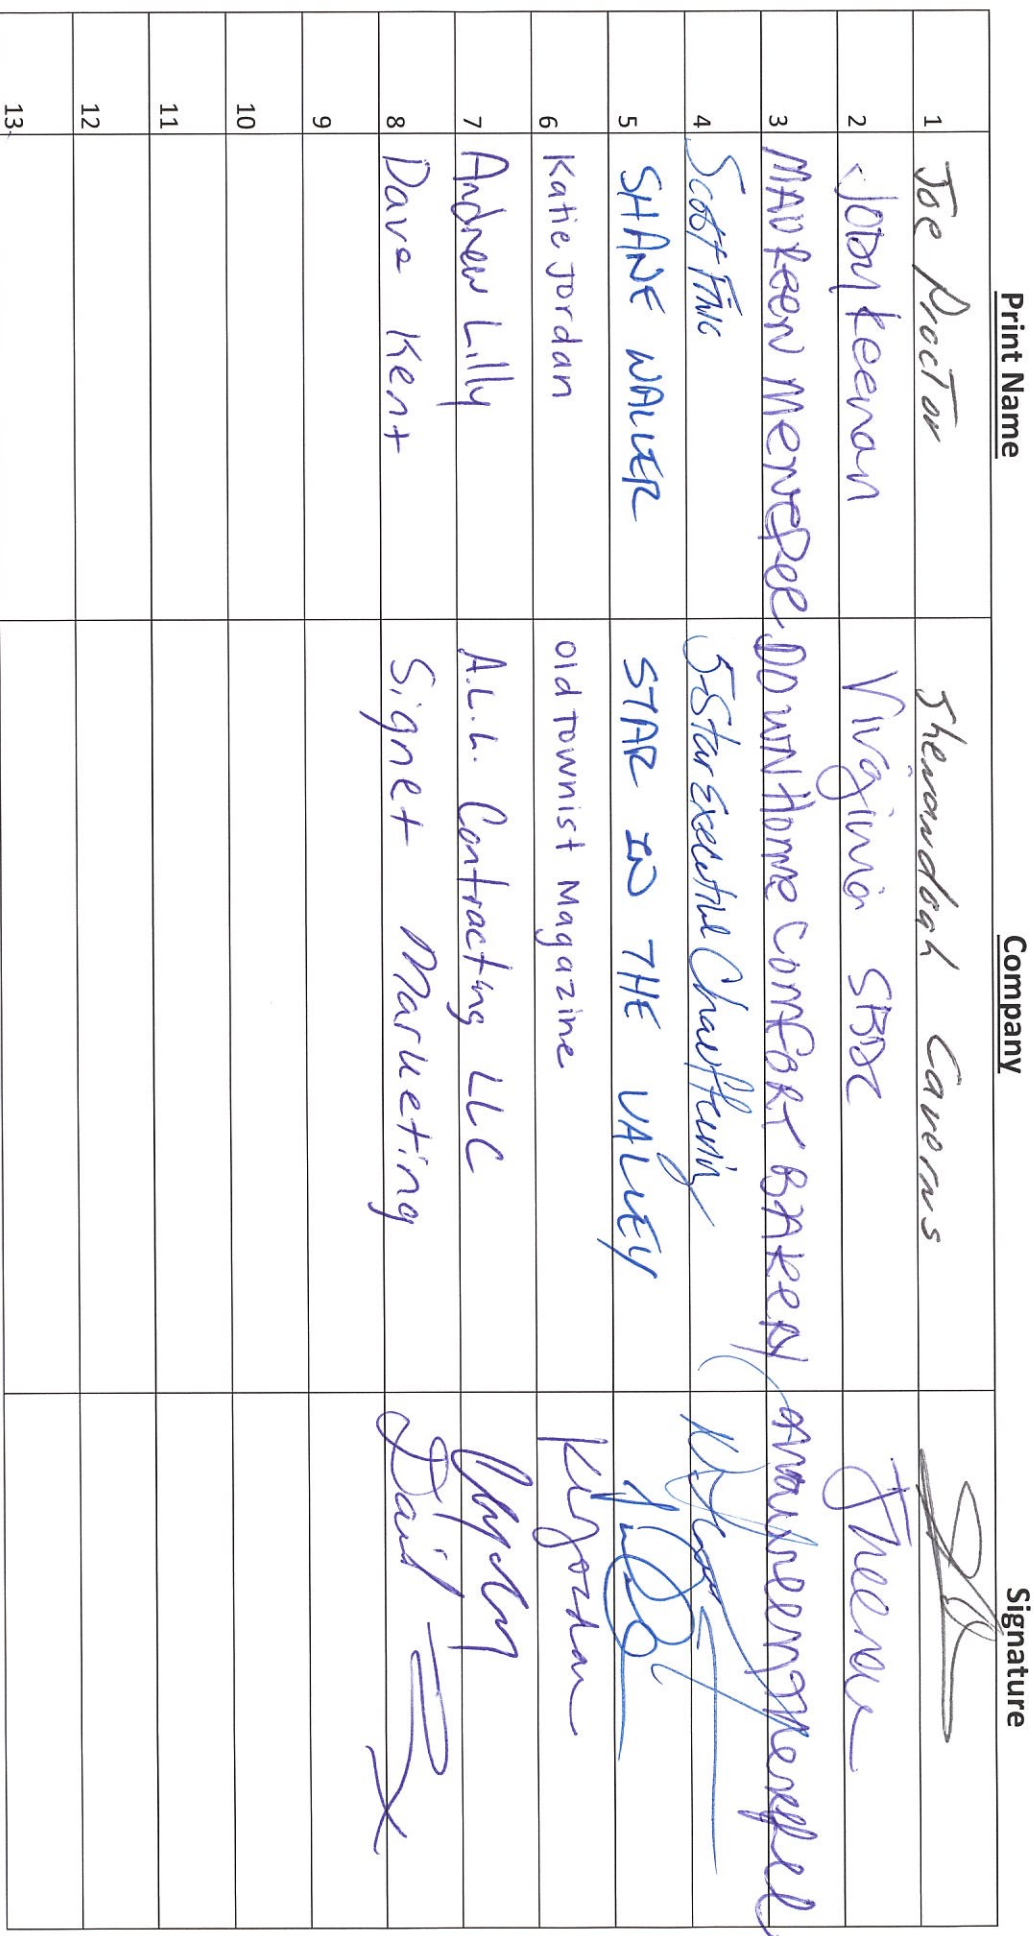 Print Name Company Signature
1 Joe Proctor Shenandoah Caverns
2 Joby Keenan Virginia SBDC JKeenan
3 MAUREEN MENEFEE DOWN HOME COMFORT BAKERY Maureen Menefee
4 Scott 5-Star Executive Chauffeuring
5 SHANE WALKER STAR IN THE VALLEY
6 Katie Jordan Old Townist Magazine K Jordan
7 Andrew Lilly A.L.L. Contracting LLC
8 Dave Kent Signet Marketing David
9
10
11
12
13